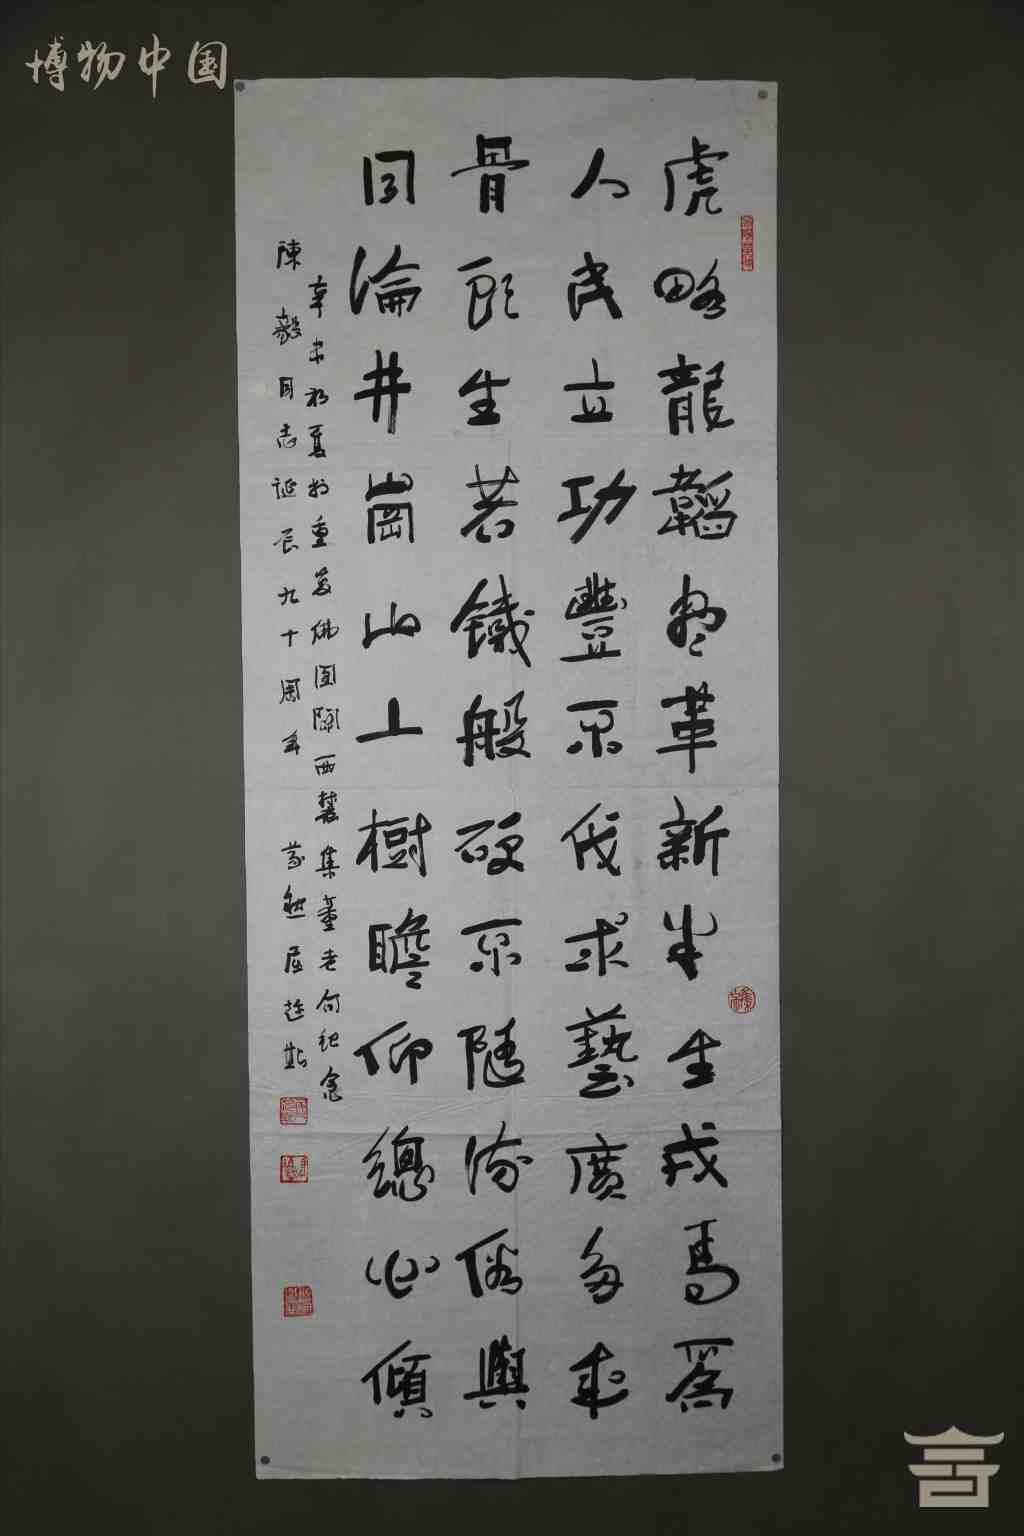 博物中国
虎略龍韜盡革新半生戎馬爲
人民立功豐不伐求藝廣多
骨頭生若鐵般硬不隨流俗與
同淪井崗山上樹瞻仰總心傾
辛未初夏於重慶佛圖關西麓集董老句紀念
陳毅同志誕辰九十周年